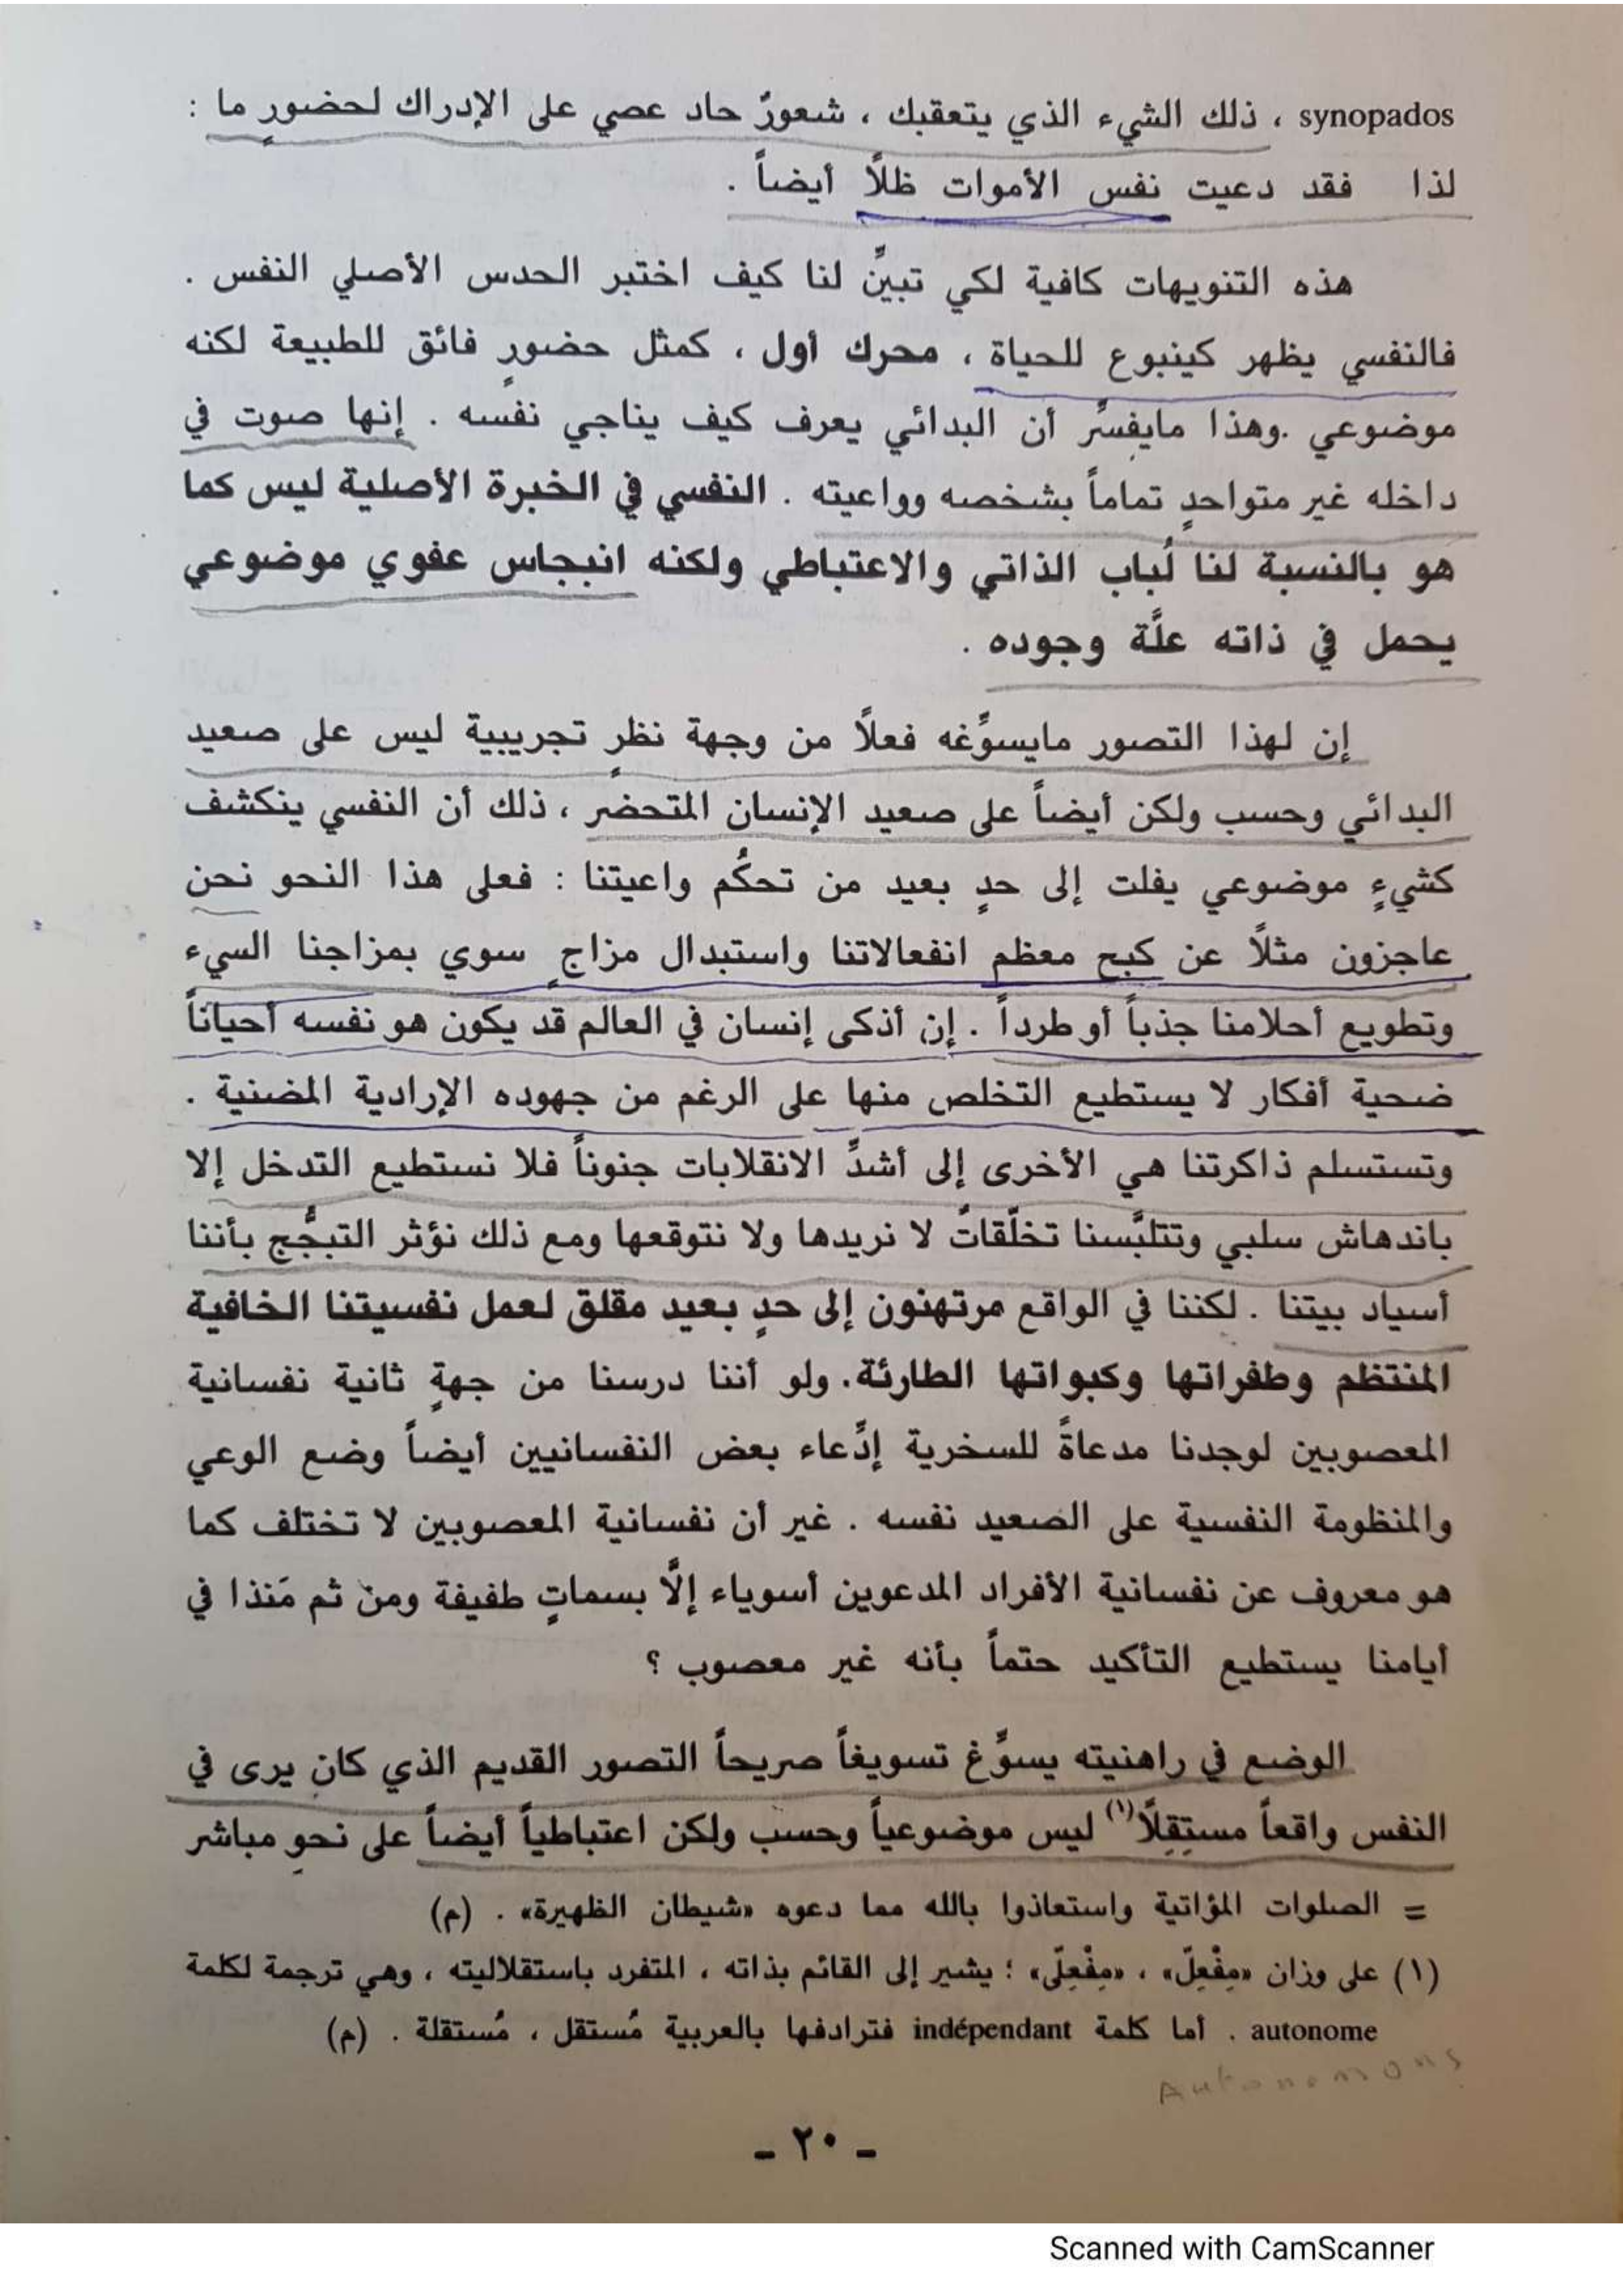 synopados ، ذلك الشيء الذي يتعقبك ، شعورٌ حاد عصي على الإدراك لحضورٍ ما :
لذا فقد دعيت نفس الأموات ظلاً أيضاً .
هذه التنويهات كافية لكي تبيِّن لنا كيف اختبر الحدس الأصلي النفس .
فالنفسي يظهر كينبوع للحياة ، محرك أول ، كمثل حضورٍ فائق للطبيعة لكنه
موضوعي .وهذا مايفسِّر أن البدائي يعرف كيف يناجي نفسه . إنها صوت في
داخله غير متواحدٍ تماماً بشخصه وواعيته . النفسي في الخبرة الأصلية ليس كما
هو بالنسبة لنا لُباب الذاتي والاعتباطي ولكنه انبجاس عفوي موضوعي
يحمل في ذاته علَّة وجوده .
إن لهذا التصور مايسوِّغه فعلاً من وجهة نظرٍ تجريبية ليس على صعيد
البدائي وحسب ولكن أيضاً على صعيد الإنسان المتحضر ، ذلك أن النفسي ينكشف
كشيءٍ موضوعي يفلت إلى حدٍ بعيد من تحكُم واعيتنا : فعلى هذا النحو نحن
عاجزون مثلاً عن كبح معظم انفعالاتنا واستبدال مزاجٍ سوي بمزاجنا السيء
وتطويع أحلامنا جذباً أو طرداً . إن أذكى إنسان في العالم قد يكون هو نفسه أحياناً
ضحية أفكار لا يستطيع التخلص منها على الرغم من جهوده الإرادية المضنية .
وتستسلم ذاكرتنا هي الأخرى إلى أشدِّ الانقلابات جنوناً فلا نستطيع التدخل إلا
باندهاش سلبي وتتلبَّسنا تخلّقاتٌ لا نريدها ولا نتوقعها ومع ذلك نؤثر التبجُّج بأننا
أسياد بيتنا . لكننا في الواقع مرتهنون إلى حدٍ بعيد مقلق لعمل نفسيتنا الخافية
المنتظم وطفراتها وكبواتها الطارئة. ولو أننا درسنا من جهةٍ ثانية نفسانية
المعصوبين لوجدنا مدعاةً للسخرية إدِّعاء بعض النفسانيين أيضاً وضع الوعي
والمنظومة النفسية على الصعيد نفسه . غير أن نفسانية المعصوبين لا تختلف كما
هو معروف عن نفسانية الأفراد المدعوين أسوياء إلَّا بسماتٍ طفيفة ومن ثم مَنذا في
أيامنا يستطيع التأكيد حتماً بأنه غير معصوب ؟
الوضع في راهنيته يسوِّغ تسويغاً صريحاً التصور القديم الذي كان يرى في
النفس واقعاً مستِقِلاً(١) ليس موضوعياً وحسب ولكن اعتباطياً أيضاً على نحوٍ مباشر
= الصلوات المؤاتية واستعاذوا بالله مما دعوه «شيطان الظهيرة» . (م)
(١) على وزان «مِفْعِلّ» ، «مِفْعِلّى» ؛ يشير إلى القائم بذاته ، المتفرد باستقلاليته ، وهي ترجمة لكلمة
autonome . أما كلمة indépendant فترادفها بالعربية مُستقل ، مُستقلة . (م)
Autonomons
- ٢٠ -
Scanned with CamScanner